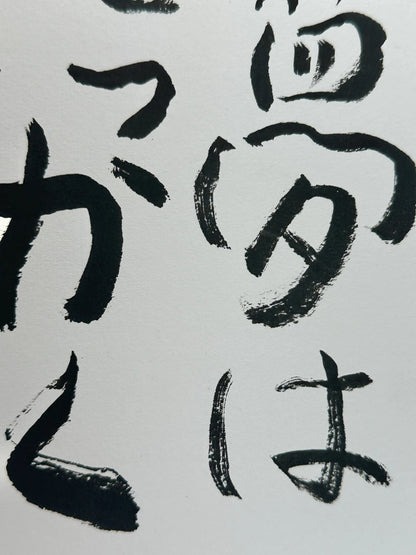 夢は
っかく